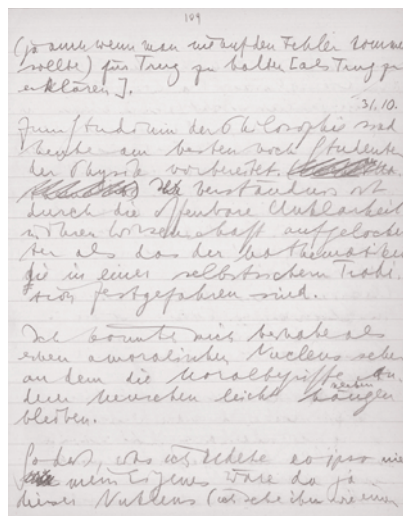 109
(ja auch wenn man nie auf den Fehler kommen
sollte) für Trug zu halten [als Trug zu
erklären].
31.10.
Zum Studium der Philosophie sind
heute am besten noch Studenten
der Physik vorbereitet.
Ihr Verständnis ist
durch die offenbare Unklarheit
in ihrer Wissenschaft aufgelocker
ter als das der Mathematiker
die in einer selbstsichern Tradi
tion festgefahren sind.
Ich könnte mich beinahe als
einen amoralischen Nucleus sehen
an dem die Moralbegriffe an
derer Menschen leicht kleben
bleiben.
So daß, was ich rede eo ipso nie
mein Eigenes wäre da ja
dieser Nukleus (ich sehe ihn wie einen